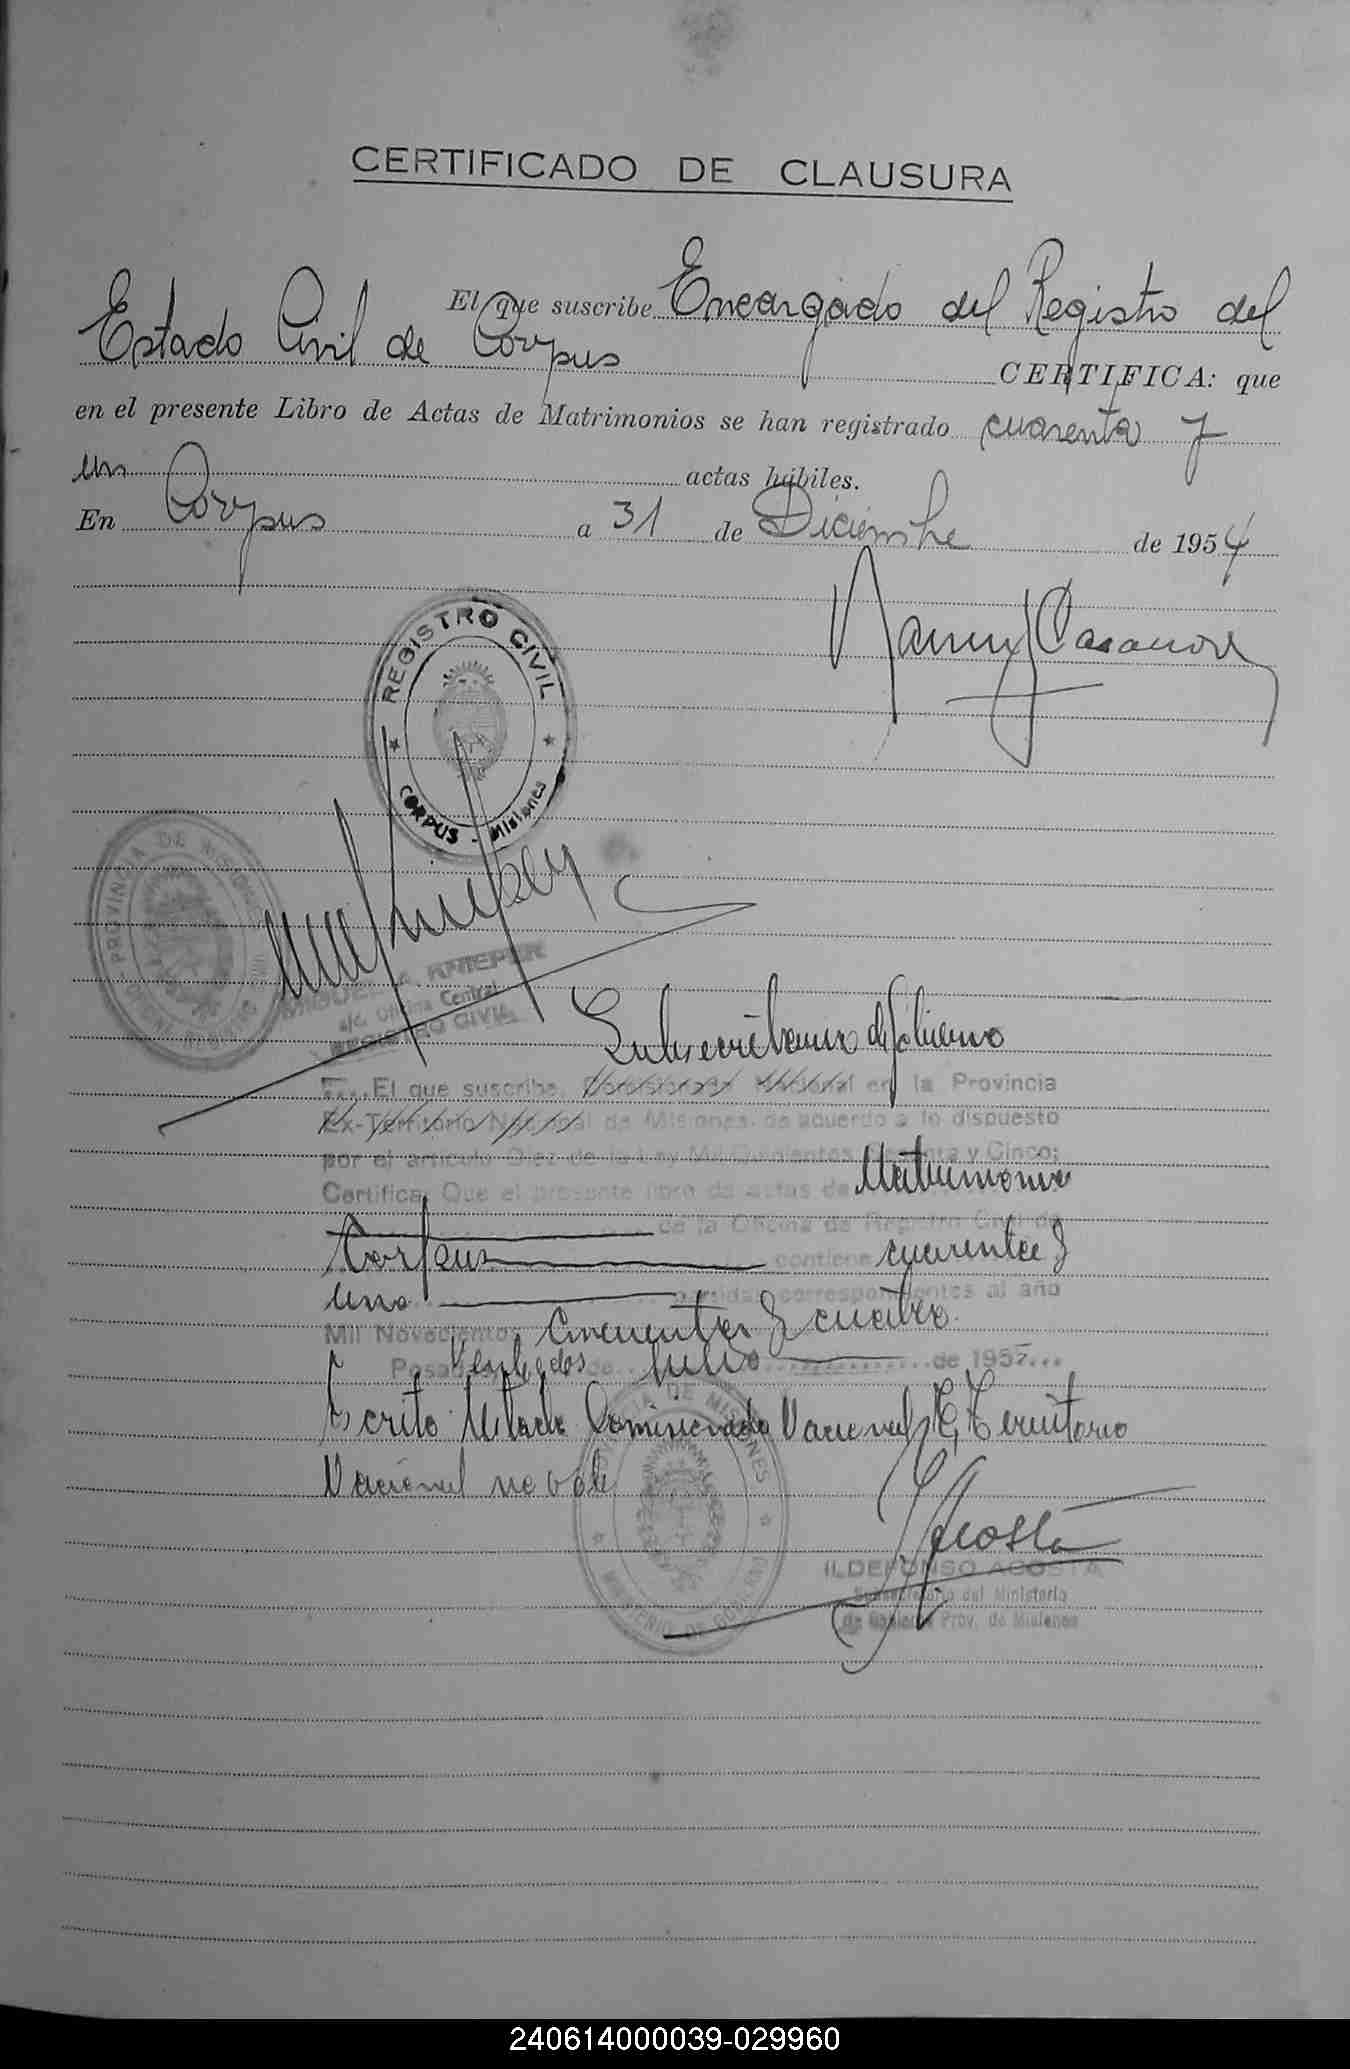 CERTIFICADO DE CLAUSURA
El que suscribe Encargado del Registro del
Estado Civil de Corpus CERTIFICA: que
en el presente Libro de Actas de Matrimonios se han registrado cuarenta y
un actas hábiles.
En Corpus a 31 de Diciembre de 1954
REGISTRO CIVIL
CORPUS - Misiones
PROVINCIA DE MISIONES
MIGUEL A. KNIEPER
a/c. Oficina Central
REGISTRO CIVIL
Subsecretario de Gobierno
El que suscribe, Comisionado Nacional en la Provincia
Ex-Territorio Nacional de Misiones, de acuerdo a lo dispuesto
por el artículo Diez de la Ley Mil Quinientos Sesenta y Cinco;
Certifica: Que el presente libro de actas de Matrimonio
de la Oficina de Registro Civil de
Corpus contiene cuarenta y
uno partidas correspondientes al año
Mil Novecientos Cincuenta y cuatro
Posadas de de 1955
Escrito Comisionado Nacional Ex Territorio
Nacional no vale
PROVINCIA DE MISIONES
MINISTERIO DE GOBIERNO
Acosta
ILDEFONSO ACOSTA
Subsecretario del Ministerio
de Gobierno Prov. de Misiones
240614000039-029960